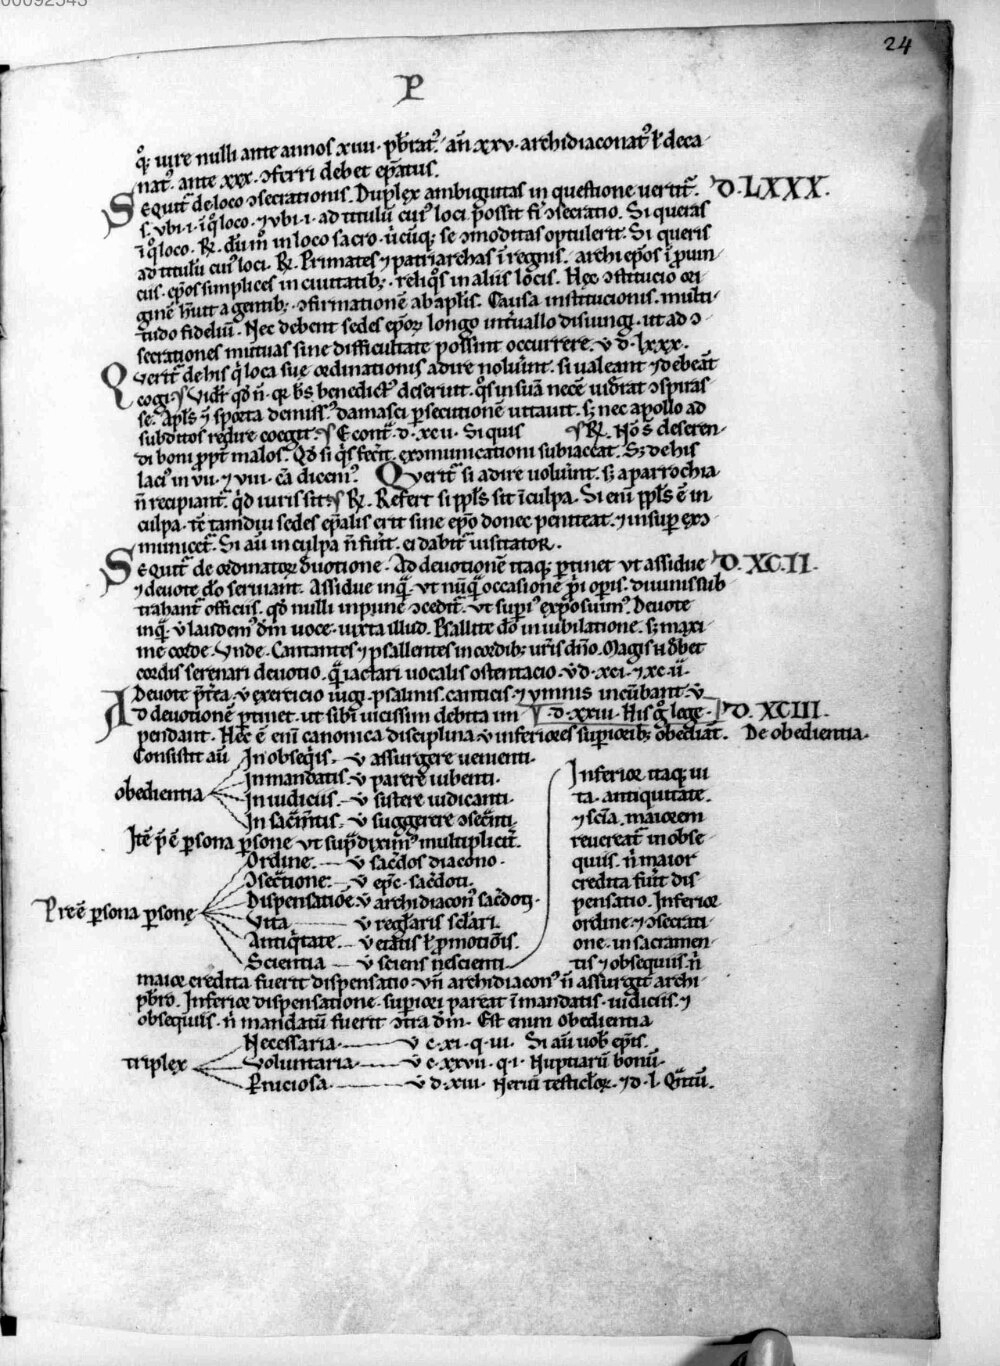 24
P
q; iure nulli ante annos xiiii · pb̄rat᷒ · an̄ xxv · archidiaconat᷒ ł deca
nat᷒ · ante xxx · ɔferri debet ep̄atus.
Sequit᷑ de loco ɔsecrationis. Duplex ambiguitas in questione uertit᷑. D · LXXX ·
s · ubi · i · ī q̊ loco · ⁊ ubi · i · ad titulū cui᷒ loci possit fi᷑ ɔsecratio. Si queras
ī q̊ loco. R̷. in loco sacro · se ɔmoditas optulerit. Si queris
ad titulū cui᷒ loci. R̷. Primates ⁊ patriarchas ī regnis · archiep̄os ī prouin
ciis · ep̄os simplices in ciuitatib; · reliq̊s in aliis locis. Hec ɔstitucio ori
ginē h̄uit a gentib; · ɔfirmationē ab ap̄lis. Causa institucionis · multi
tudo fideliū. Nec debent sedes ep̄oꝝ longo int᷑uallo disiungi · ut ad ɔ
secrationes mutuas sine difficultate possint occurrere. v̇ d · lxxx.
Querit᷑ de his q̄ loca sue ordinationis adire noluīnt · si ualeant ⁊ debeāt
cogi. Videt᷑ qđ n̄ · qr b̄s benedict᷒ deseruit · q̊s in suā necē uid̄rat ɔspiras
se. Apl̄s ⁊ sporta demiss᷒ damasci p̱secutionē uitauit. s; nec apollo ad
subditos redire coegit. Econt᷑ · d · xcii · Siquis R̷. Nō s̄ deseren
di boni ꝓpt᷑ malos. Qđ si q̇s fec̄it · exɔmunicationi subiaceat. S; de his
laci᷒ in vii · ⁊ viii · cā dicem᷒. Querit᷑ si adire uoluīnt · s; a parrochia
n̄ recipiant᷑ · q̇d iuris sit. R̷. Refert si ppl̄s sit ī culpa. Si enī ppl̄s ē in
culpa · tē tamdiu sedes ep̄alis erit sine ep̄o donec peniteat · ⁊ insup̱ exɔ
municet᷑. Si aū in culpa n̄ fuīt · ei dabit᷑ uisitator.
Sequit᷑ de ordinatoꝝ d̄uotione. Ad deuotionē itaq; p̱tinet ut assidue D · XC · II ·
⁊ deuote dō seruiant. Assidue inq̄ · ut nūq̄ occasionē p̄i op̱is · diuinis sub
trahant᷑ officiis · qđ nulli inpune ɔcedit᷑ · ut sup̱i᷒ exposuim᷒. Deuote
inq̄ · v̇ laudem᷒ dm̄ uoce · iuxta illud. Psallite dō in iubilatione · s; maxi
me corde. Vnde. Cantantes ⁊ psallentes in cordib; ur̄is dn̄o. Magis n̄ d̄bet
cordis serenari deuotio · q̄ iactari uocalis ostentacio. v̇ d · xci · ⁊ xc · ii ·
Deuote p̄t᷑ea · v̇ exercicio iugi · psalmis · canticis · ⁊ ymnis incūbant · v̇
d · xxiii · His g᷑ lege ·
Ad deuotionē p̱tinet · ut sibī uicissim debita im D · XCIII ·
pendant. Hec ē enī canonica disciplina · v̇ inferiores sup̱iorib; obediāt. De obedientia ·
Consistit aū In obseq̇is. v̇ assurgere uenienti ·
obedientia In mandatis. v̇ parere iubenti ·
In iudiciis. v̇ sistere iudicanti ·
In sacm̄tis. v̇ suggerere ɔsec̄nti ·
Itē p̄ ē p̱sona p̱sone ut sup̄ dixim᷒ multiplicit᷑.
Ordine. v̇ sac̄dos diacono ·
ɔsec̄tione. v̇ ep̄c · sac̄doti.
Pre ē p̱sona p̱sonę Dispensatiōe. v̇ archidiacon᷒ sac̄doti ·
Vita v̇ regl̄aris scl̄ari.
Antiq̇tate. v̇ etatis ł ꝓmotiōis.
Scientia v̇ sciens nescienti
Inferior itaq; ui
ta · antiquitate ·
⁊ scīa · maiorem
reuereat᷑ in obse
quiis · n̄ maior
credita fuīt dis
pensatio. Inferior
ordine ⁊ ɔsecrati
one · in sacramen
tis ⁊ obsequiis n̄
maior credita fuerit dispensatio. Vn̄ archidiacon᷒ n̄ assurgit archi
pb̄ro. Inferior dispensatione · sup̱iori pareat ī mandatis · iudiciis · ⁊
obsequiis · n̄ mandatū fuerit ɔtra dm̄. Est enim obedientia
Necessaria v̇ c · xi · q · iii · Si aū uob̄ ep̄is.
triplex Voluntaria v̇ c · xxvii · q · i · Nuptiarū bonū ·
P̱niciosa v̇ d · xiii · Nerui testicl̄oꝝ · ⁊ d · l · Q᷑ntū.